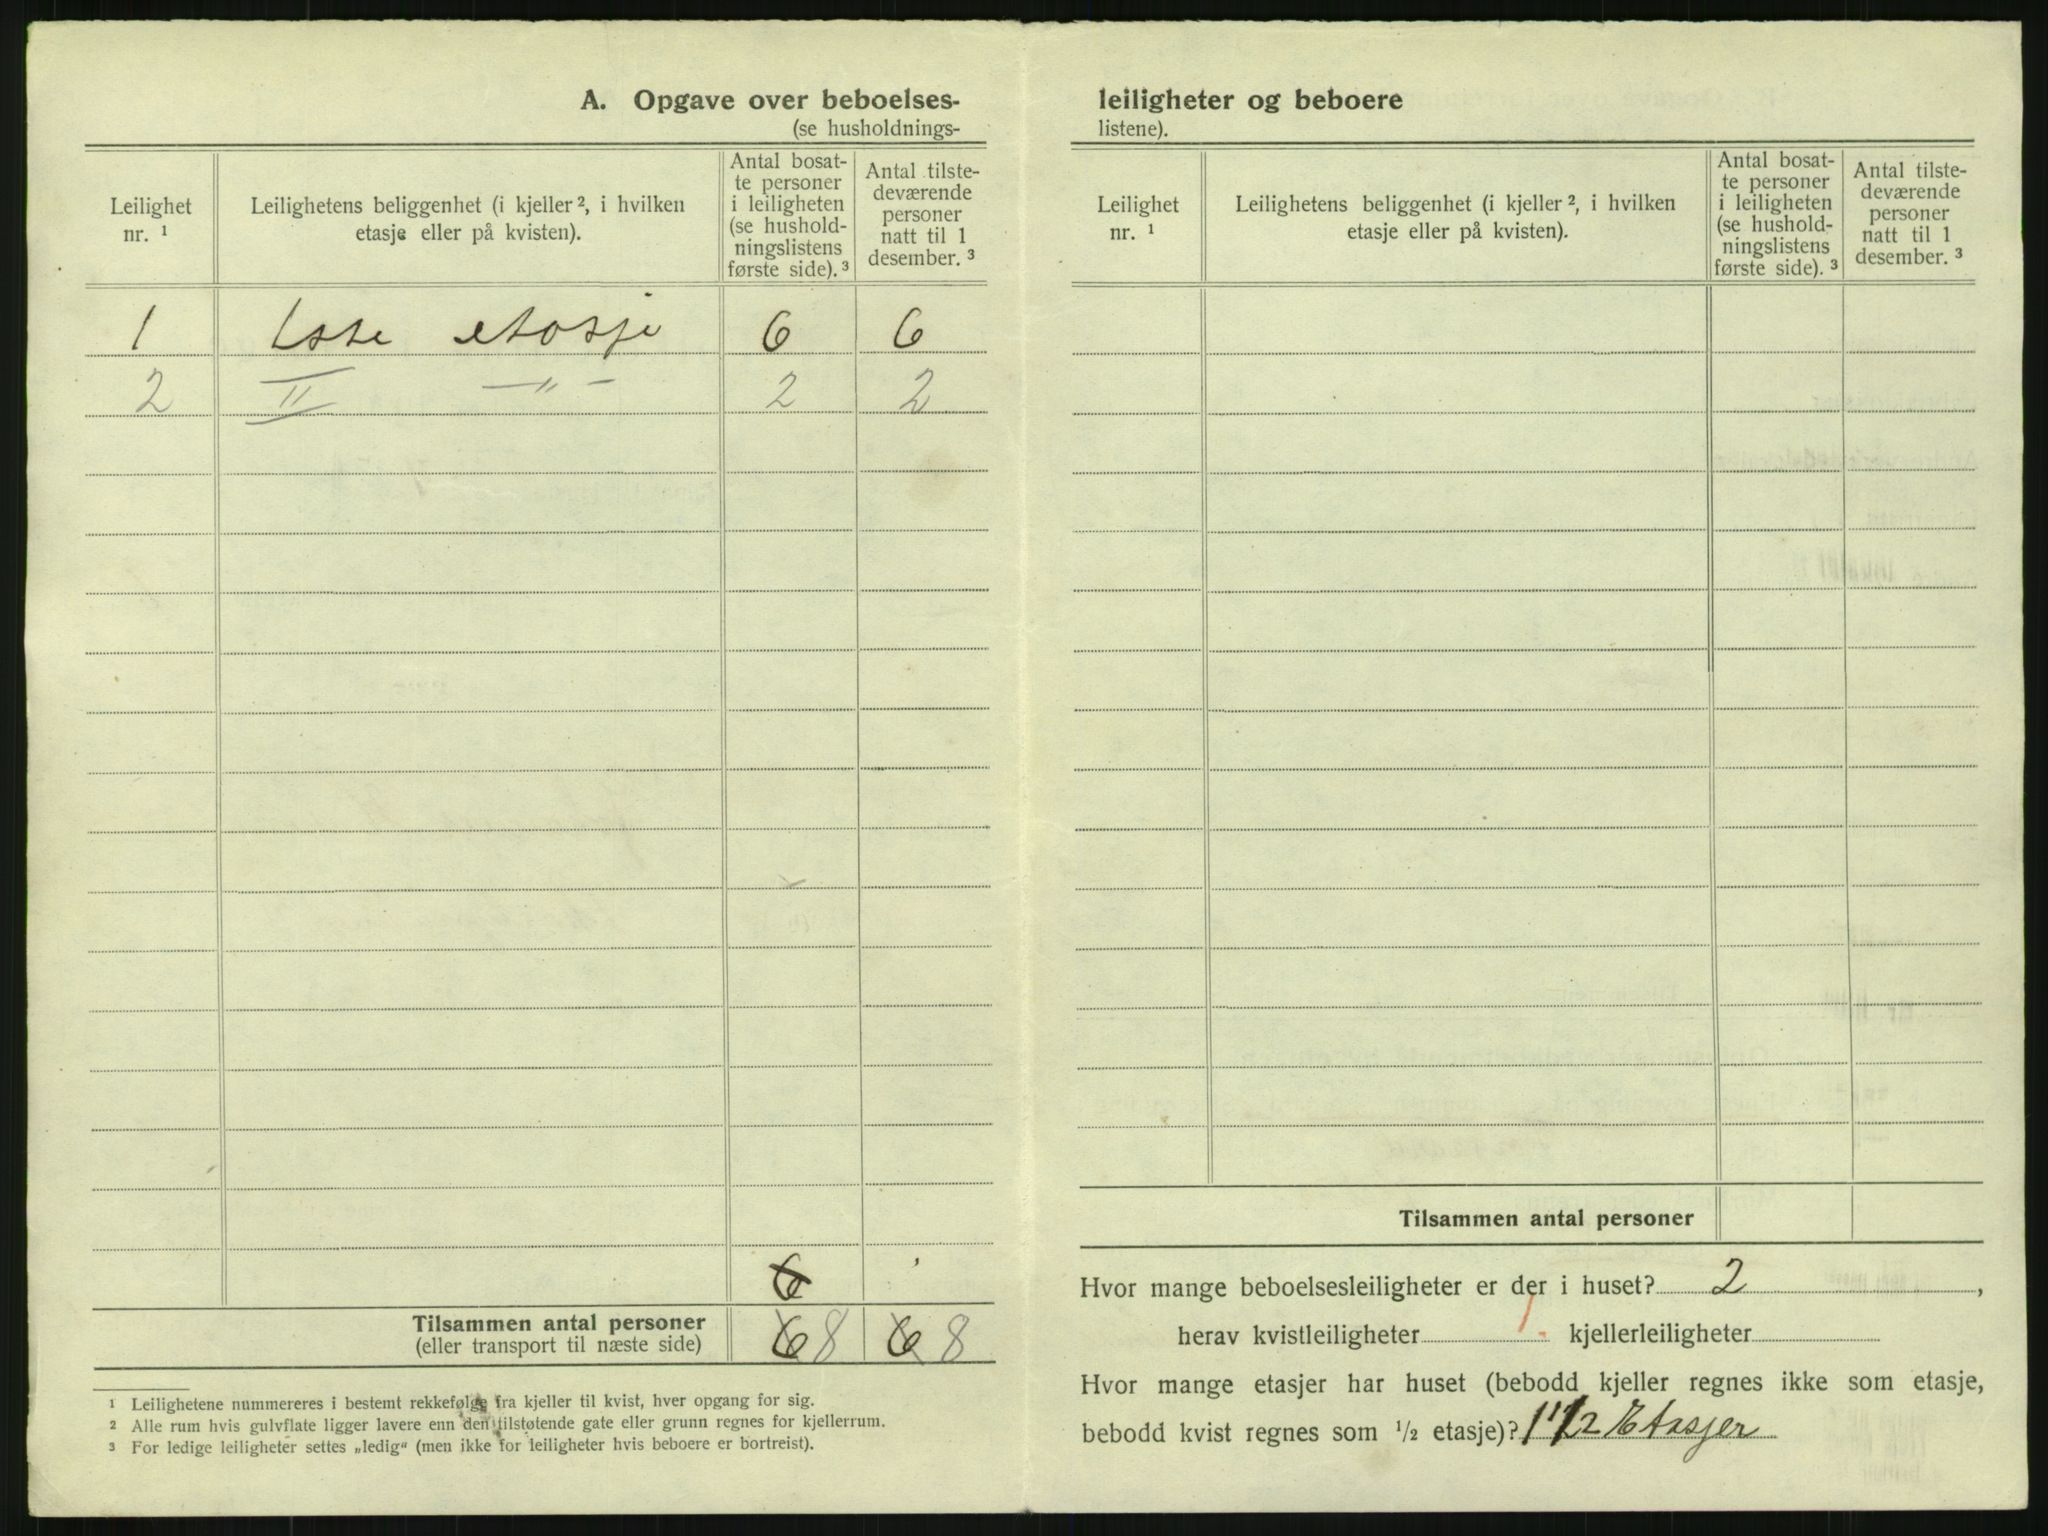 A. Opgave over beboelses-
(se husholdnings-
Leilighet nr. ¹
Leilighetens beliggenhet (i kjeller ², i hvilken etasje eller på kvisten).
Antal bosat-
te personer
i leiligheten
(se hushold-
ningslistens
første side). ³
Antal tilste-
deværende
personer
natt til 1
desember. ³
1 1ste etasje 6 6
2 II —„— 2 2
6
Tilsammen antal personer 6 8 6 8
(eller transport til næste side)
¹ Leilighetene nummereres i bestemt rekkefølge fra kjeller til kvist, hver opgang for sig.
² Alle rum hvis gulvflate ligger lavere enn den tilstøtende gate eller grunn regnes for kjellerrum.
³ For ledige leiligheter settes „ledig“ (men ikke for leiligheter hvis beboere er bortreist).
leiligheter og beboere
listene).
Leilighet nr. ¹
Leilighetens beliggenhet (i kjeller ², i hvilken etasje eller på kvisten).
Antal bosat-
te personer
i leiligheten
(se hushold-
ningslistens
første side). ³
Antal tilste-
deværende
personer
natt til 1
desember. ³
Tilsammen antal personer
Hvor mange beboelsesleiligheter er der i huset? 2 ,
herav kvistleiligheter 1. kjellerleiligheter
Hvor mange etasjer har huset (bebodd kjeller regnes ikke som etasje,
bebodd kvist regnes som ½ etasje)? 1 1/2 Etasjer